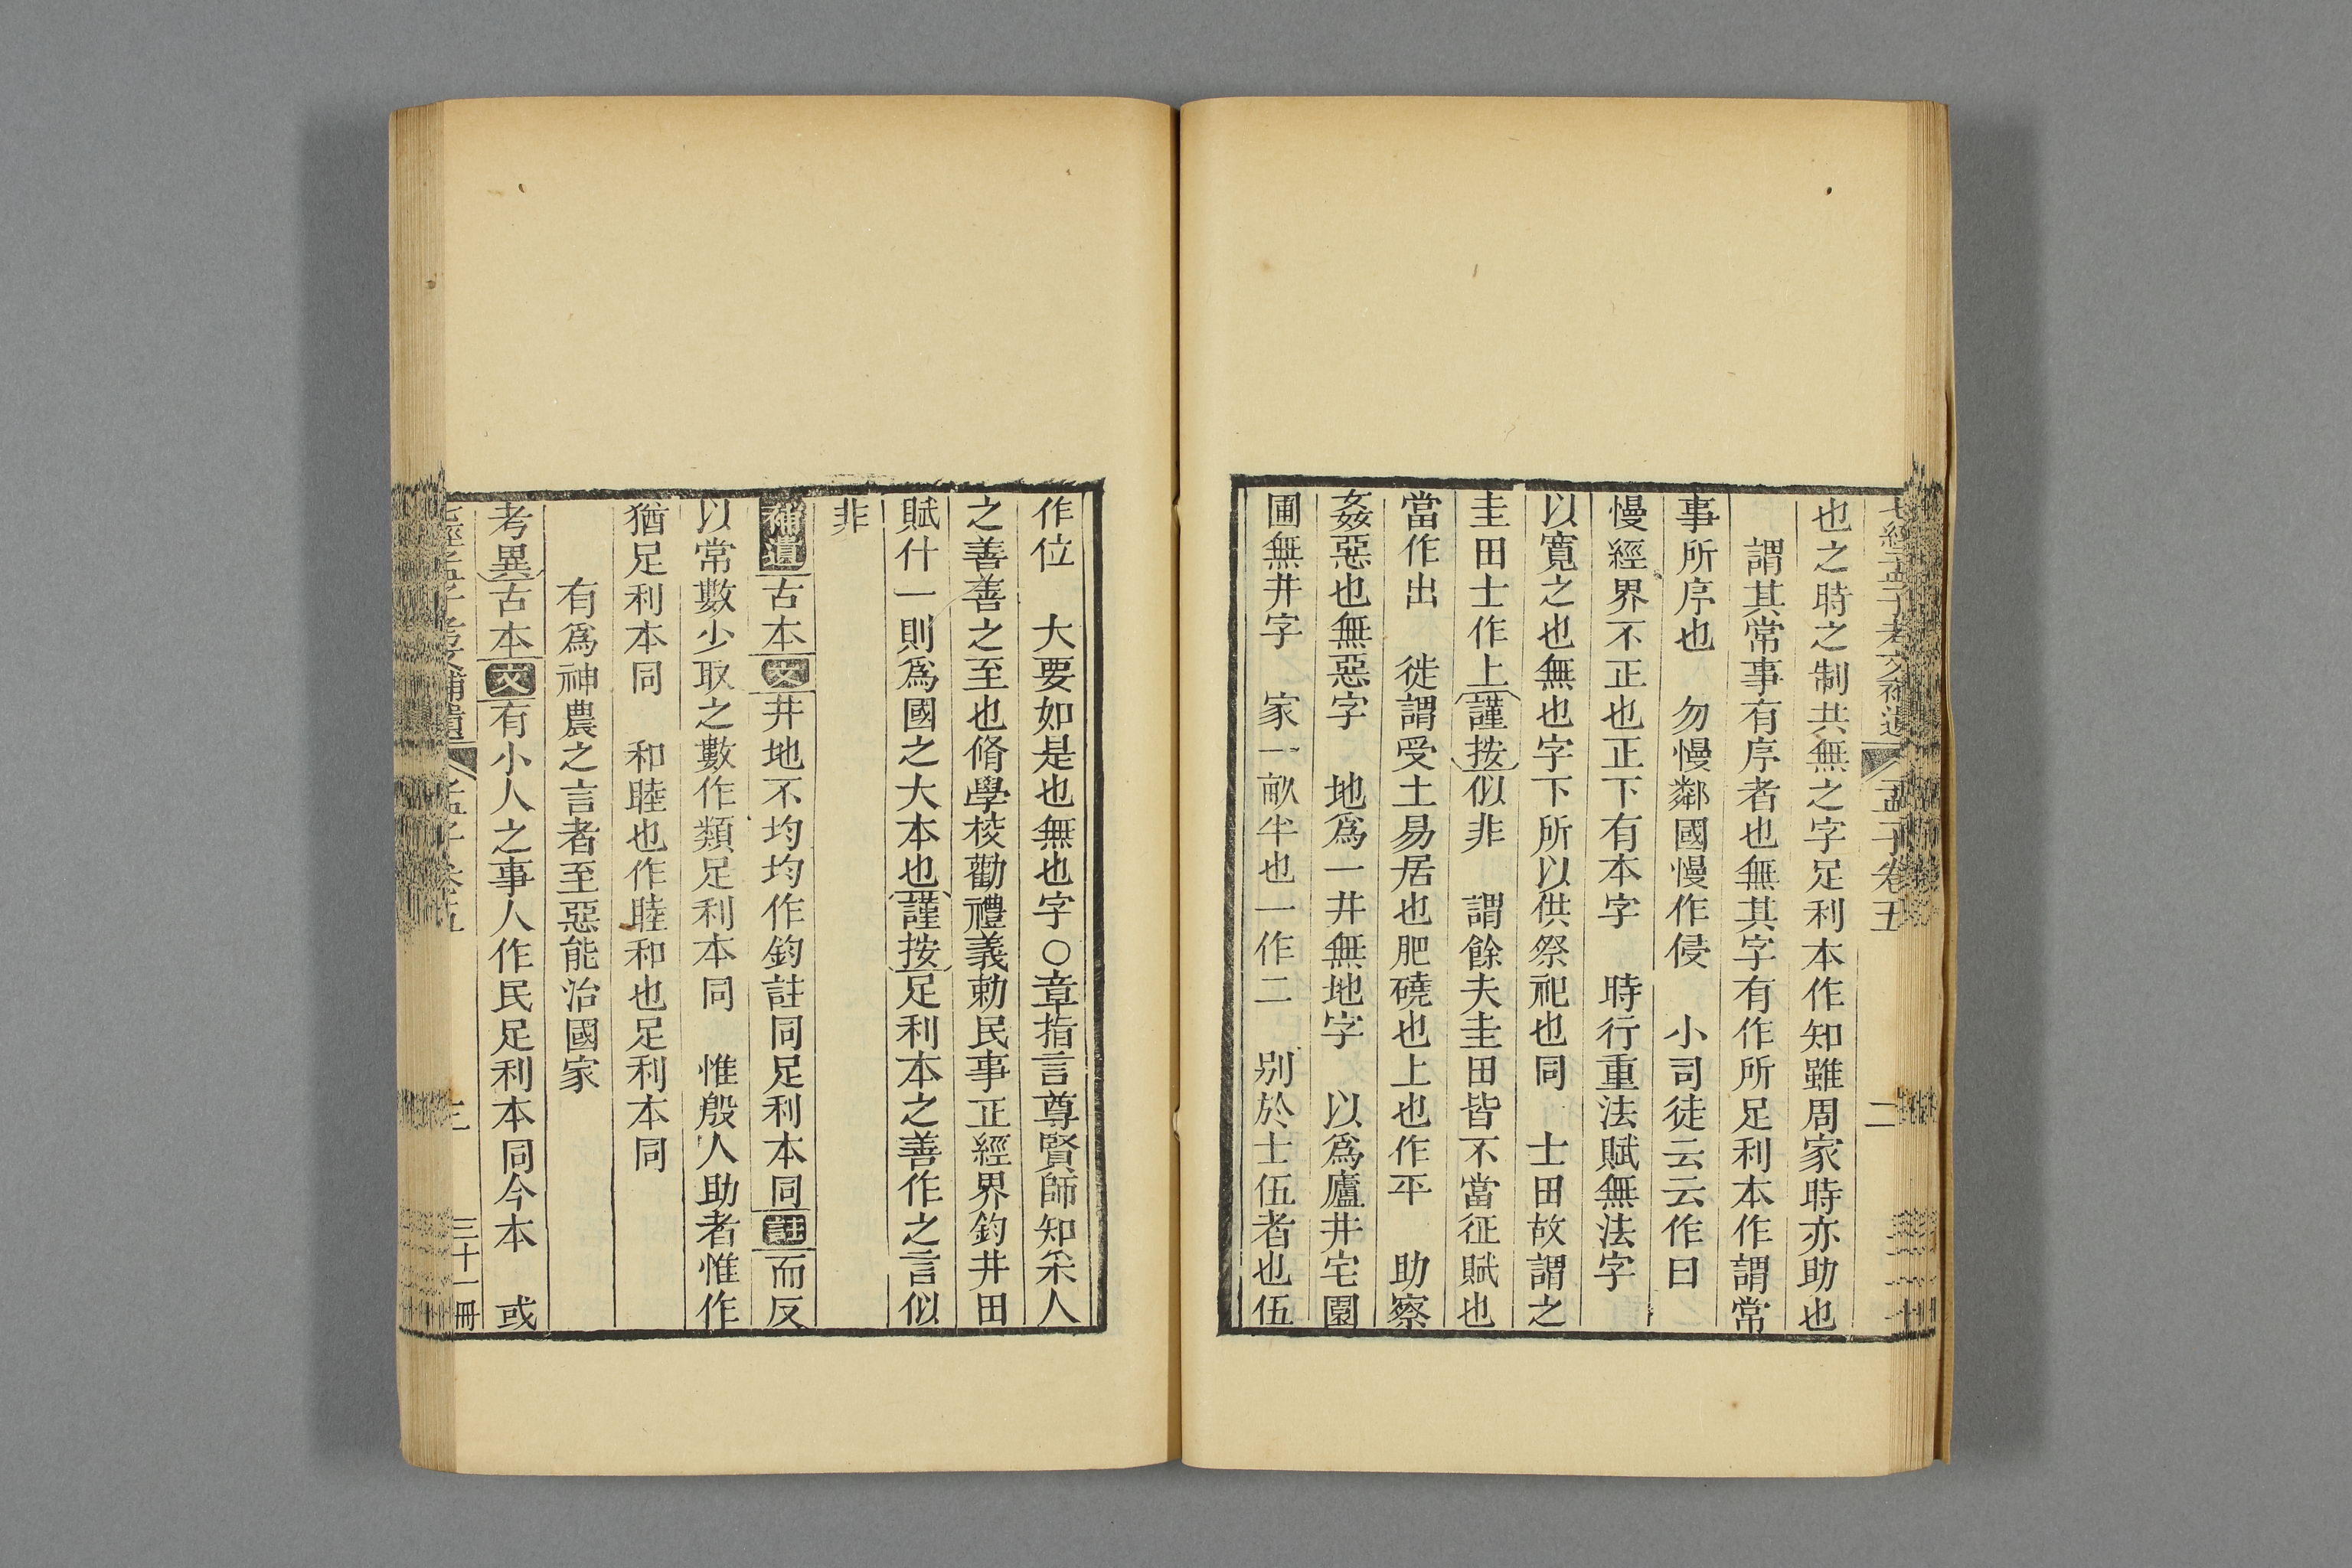 七經孟子考文補遺 孟子卷五 二
也之時之制共無之字足利本作知雖周家時亦助也
謂其常事有序者也無其字有作所足利本作謂常
事所序也 勿慢鄰國慢作侵 小司徒云云作曰
慢經界不正也正下有本字 時行重法賦無法字
以寛之也無也字下所以供祭祀也同 士田故謂之
圭田士作上謹按似非 謂餘夫圭田皆不當征賦也
當作出 徙謂受土易居也肥磽也上也作平 助察
姦惡也無惡字 地爲一井無地字 以爲廬井宅園
圃無井字 家一畝半也一作二 别於士伍者也伍
作位 大要如是也無也字○章指言尊賢師知采人
之善善之至也脩學校勸禮義勅民事正經界鈞井田
賦什一則爲國之大本也謹按足利本之善作之言似
非
補遺古本文井地不均均作鈞註同足利本同註而反
以常數少取之數作類足利本同 惟殷人助者惟作
猶足利本同 和睦也作睦和也足利本同
有爲神農之言者至惡能治國家
考異古本文有小人之事人作民足利本同今本 或
七經孟子考文補遺 孟子卷五 三 三十一冊